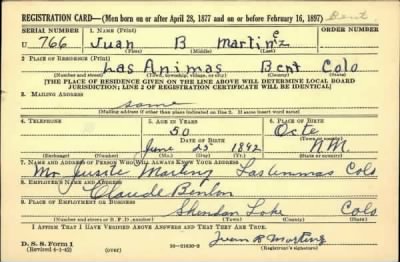 REGISTRATION CARD—(Men born on or after April 28, 1877 and on or before February 16, 1897) Bent
SERIAL NUMBER 1. NAME (Print) ORDER NUMBER
U 766 Juan B Martinez
(First) (Middle) (Last)
2. PLACE OF RESIDENCE (Print)
Las Animas Bent Colo
(Number and street) (Town, township, village, or city) (County) (State)
[THE PLACE OF RESIDENCE GIVEN ON THE LINE ABOVE WILL DETERMINE LOCAL BOARD
JURISDICTION; LINE 2 OF REGISTRATION CERTIFICATE WILL BE IDENTICAL]
3. MAILING ADDRESS
same
[Mailing address if other than place indicated on line 2. If same insert word same]
4. TELEPHONE 5. AGE IN YEARS 6. PLACE OF BIRTH
50 Octe
DATE OF BIRTH (Town or county)
June 25 1892 N.M.
(Exchange) (Number) (Mo.) (Day) (Yr.) (State or country)
7. NAME AND ADDRESS OF PERSON WHO WILL ALWAYS KNOW YOUR ADDRESS
Colo
8. EMPLOYER'S NAME AND ADDRESS
Claude
9. PLACE OF EMPLOYMENT OR BUSINESS
Sheridan Lake Colo
(Number and street or R. F. D. number) (Town) (County) (State)
I AFFIRM THAT I HAVE VERIFIED ABOVE ANSWERS AND THAT THEY ARE TRUE.
D. S. S. Form 1 Juan B Martinez
(Revised 4-1-42) (over) 16—21630-2 (Registrant's signature)